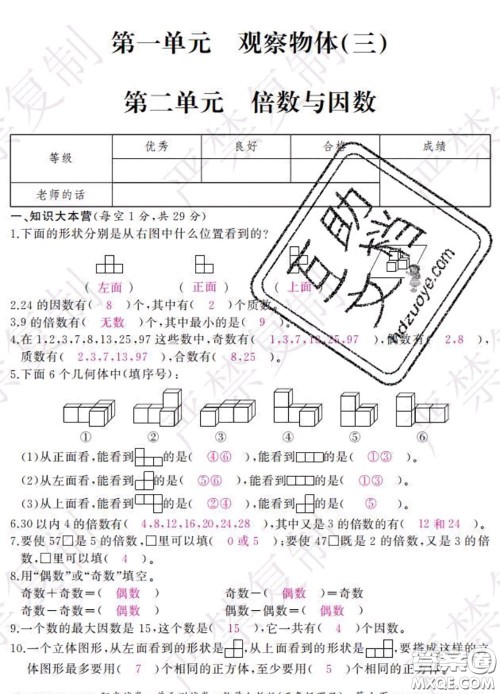 第一单元 观察物体(三)
第二单元 倍数与因数
等级 优秀 良好 合格 成绩
老师的话
一、知识大本营(每空1分,共29分)
1.下面的形状分别是从右图中什么位置看到的?
(左面) (正面) (上面
2.24的因数有( 8 )个,其中有( 2 )个质数。
3.9的倍数有(无数)个,其中最小的是( 9 )。
4.在1,2,3,7,8,13,25,97这些数中,奇数有(1,3,7,13,25,97),偶数有(2,8),
质数有(2,3,7,13,97),合数有(8,25)。
5.下面6个几何体中(填序号):
① ② ③ ④ ⑤ ⑥
(1)从正面看,能看到的是(④⑥),能看到的是(①③)。
(2)从左面看,能看到的是(⑤⑥),能看到的是(①③)。
(3)从上面看,能看到的是(②④),能看到的是(①⑤)。
6.30以内4的倍数有(4,8,12,16,20,24,28),其中又是3的倍数的有(12和24)。
7.要使57□是5的倍数,□里可以填(0或5);要使47□既是2的倍数,又是3的倍
数,□里可以填(4)。
8.用“偶数”或“奇数”填空。
奇数+奇数=(偶数) 奇数-奇数=(偶数)
奇数-奇数=(偶数) 偶数-偶数=(偶数)
9.一个数的最大因数是15,这个数是(15),它一共有(4)个因数。
10.一个立体图形,从左面看到的形状是,从上面看到的形状是,要搭成这样的立
体图形最多要用(7)个相同的正方体,至少要用(5)个相同的正方体。
严禁复制
百助文档
hdzuoye.com
答案圈
MXQE.COM